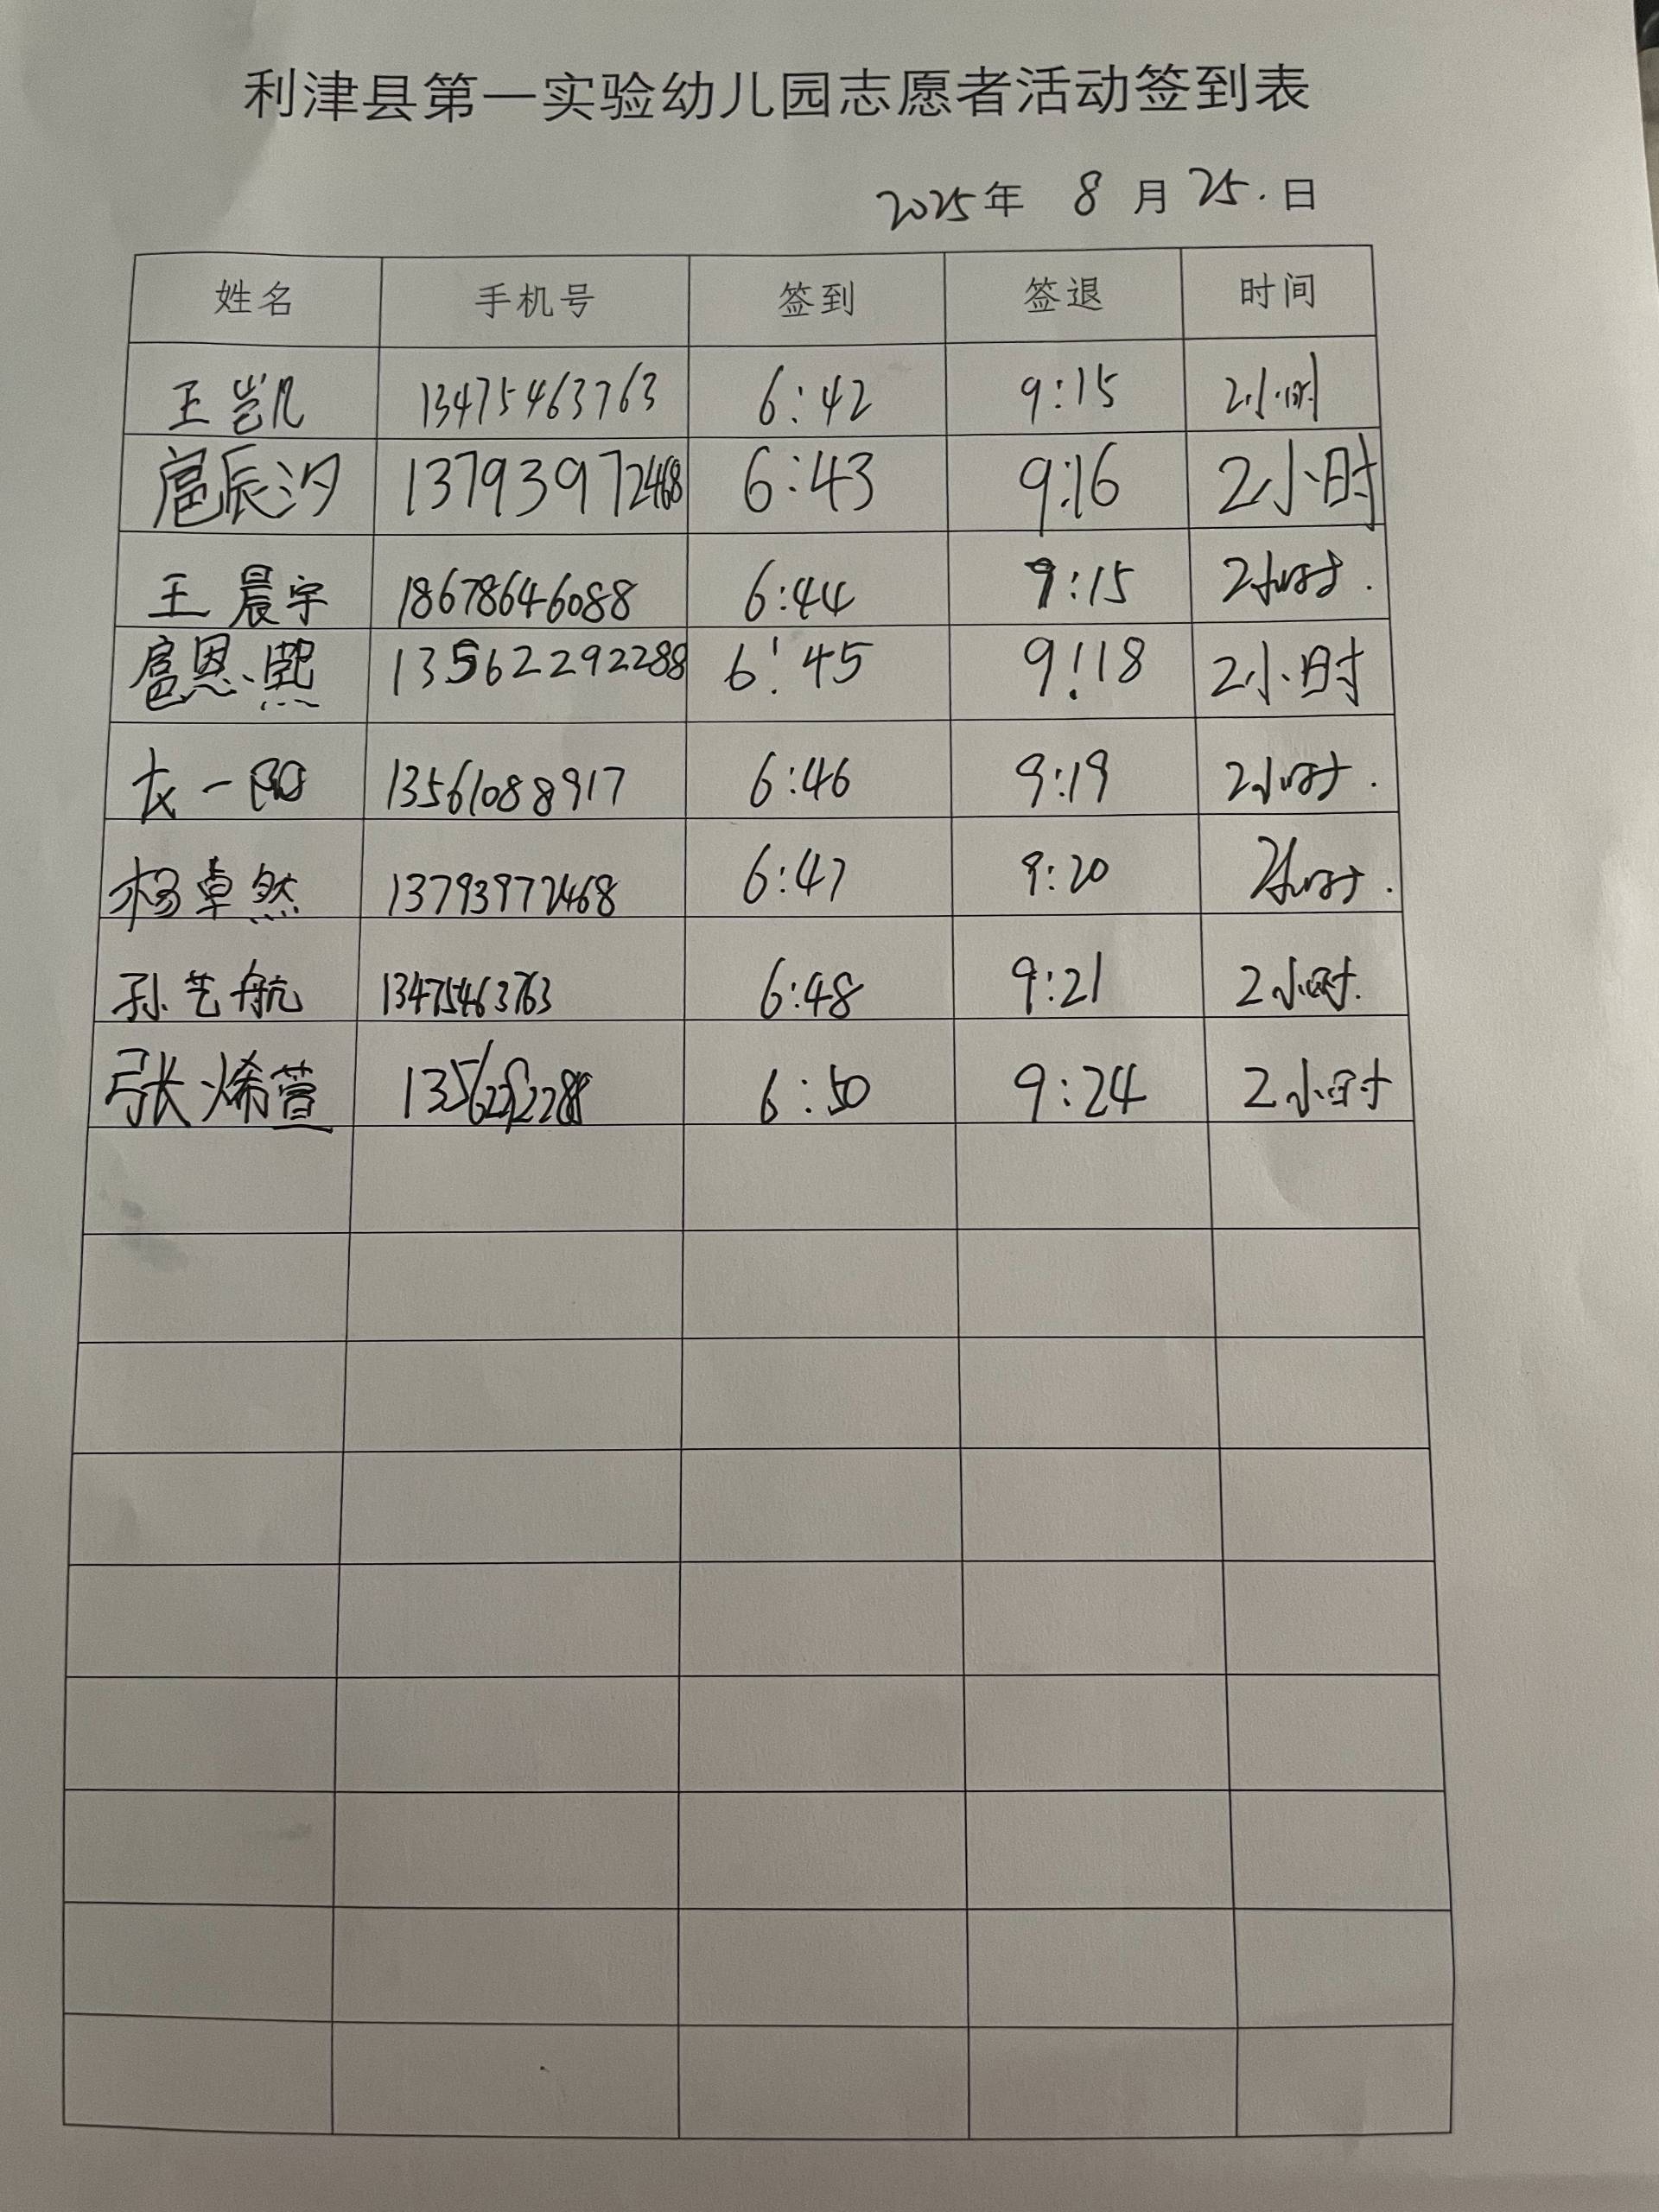 利津县第一实验幼儿园志愿者活动签到表
2025年 8月25.日
姓名 手机号 签到 签退 时间
王岂凡 13475463763 6:42 9:15 2小时
扈辰汐 13793972468 6:43 9:16 2小时
王晨宇 18678646088 6:44 9:15 2小时.
扈恩熙 13562292288 6:45 9:18 2小时
一阳 13561088917 6:46 9:19 2小时.
杨卓然 13793972468 6:47 9:20 2小时.
孙艺航 13475463763 6:48 9:21 2小时.
张烯萱 13562292288 6:50 9:24 2小时